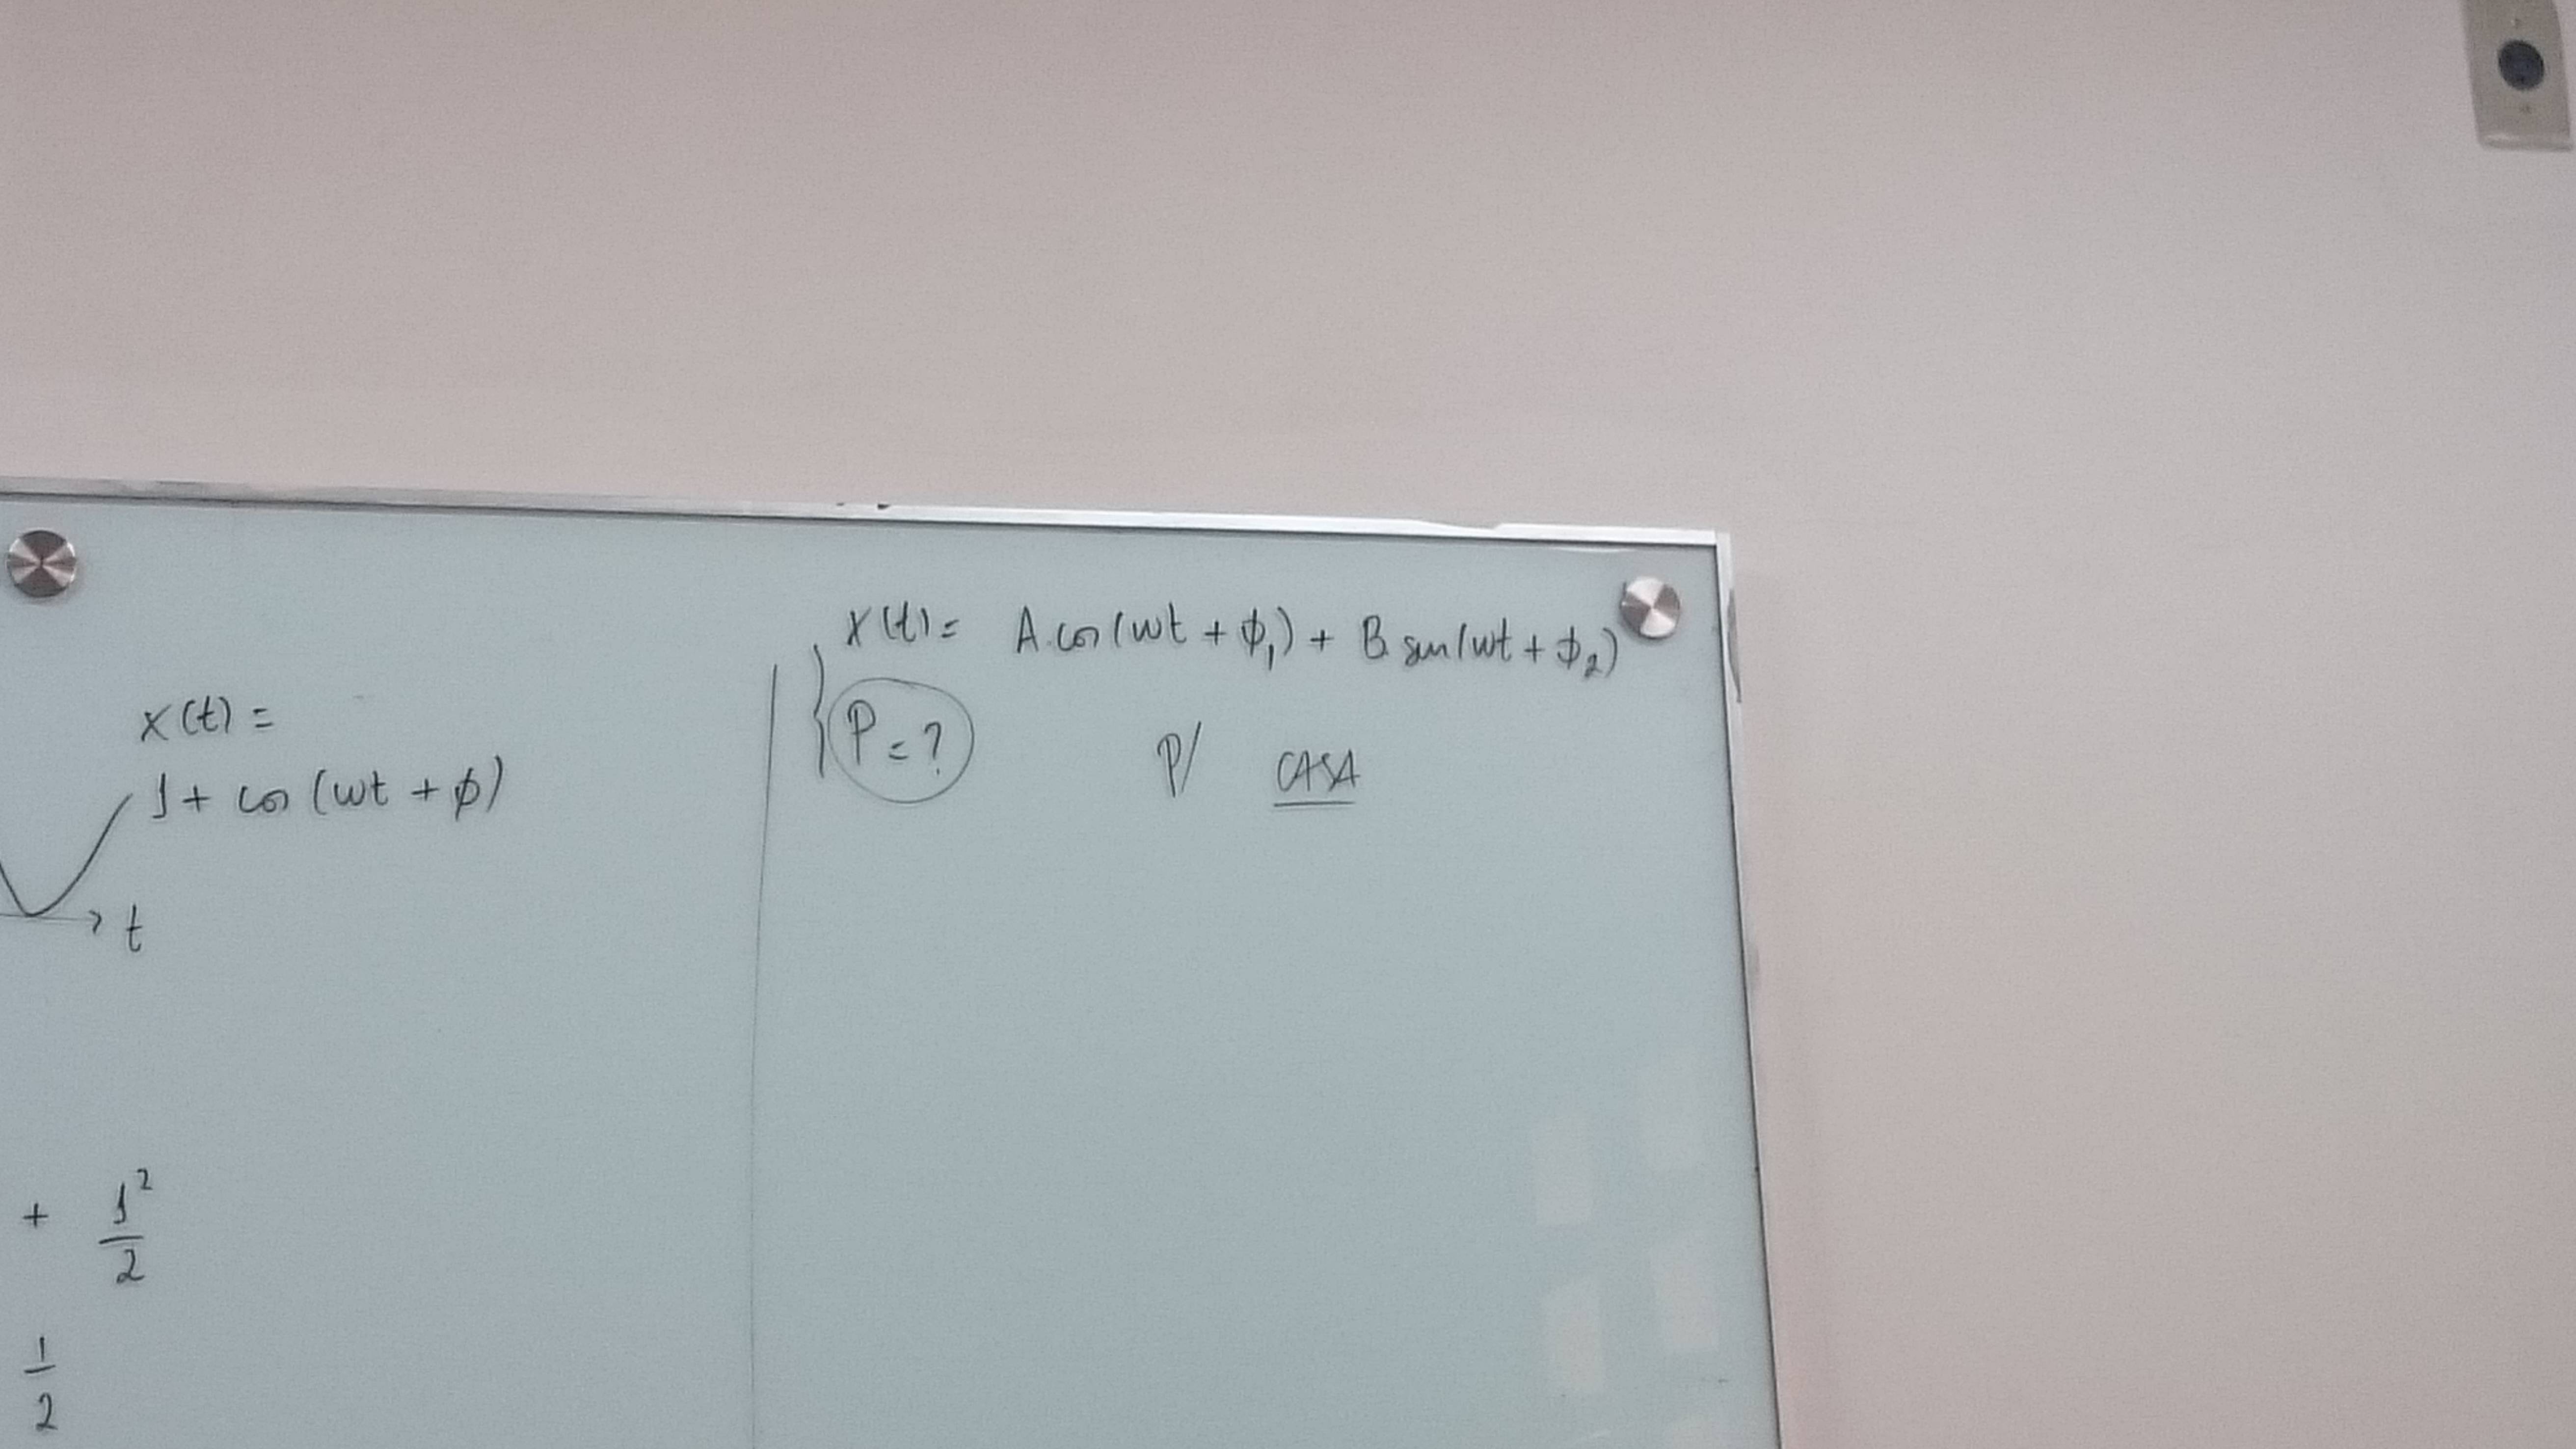 x(t) =
1 + cos (wt + φ)
t
+ 1²/2
1/2
x(t) = A cos(wt + φ₁) + B sen(wt + φ₂)
P = ?
P/ CASA